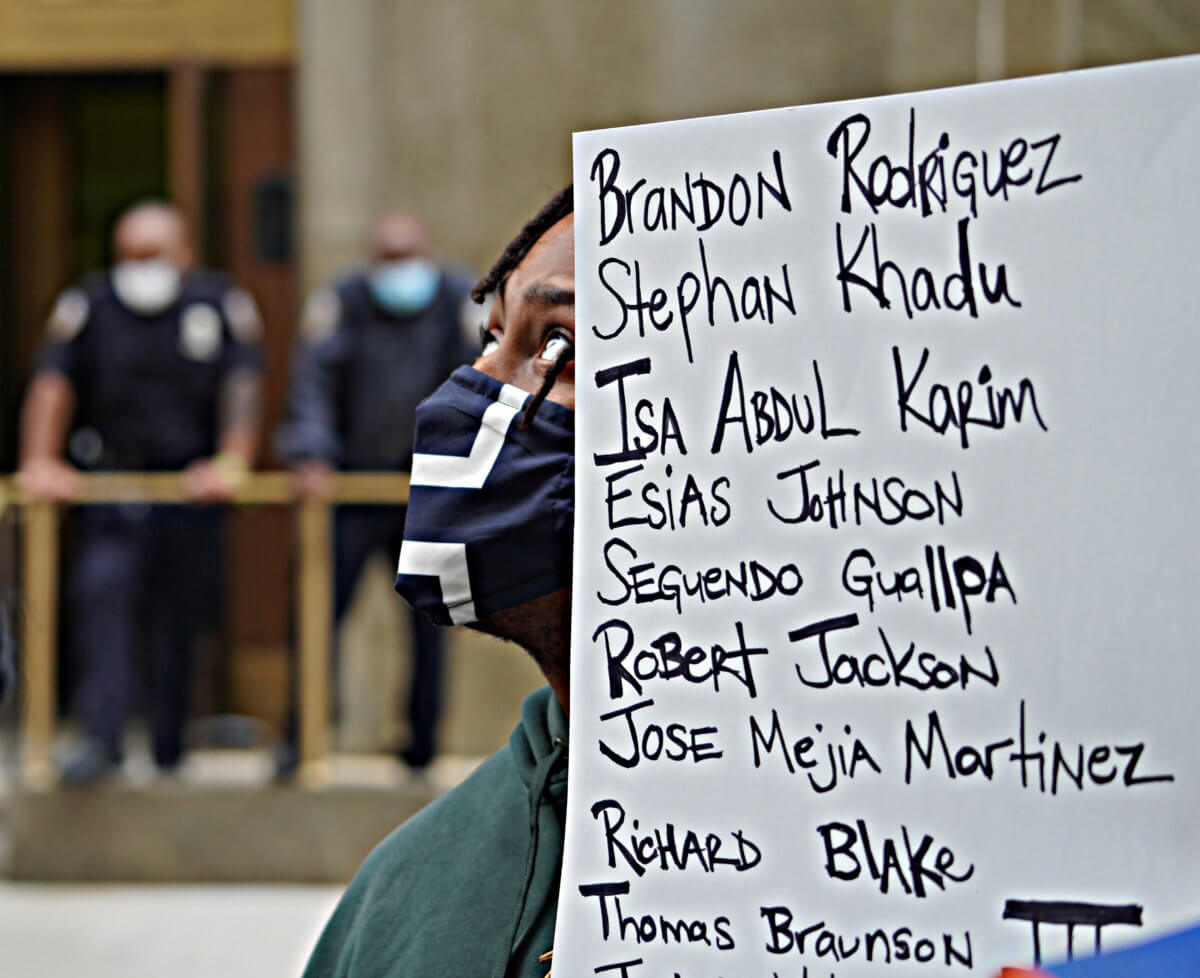 Brandon Rodriguez
Stephan Khadu
Isa Abdul Karim
Esias Johnson
Seguendo Guallpa
Robert Jackson
Jose Mejia Martinez
Richard Blake
Thomas Braunson III